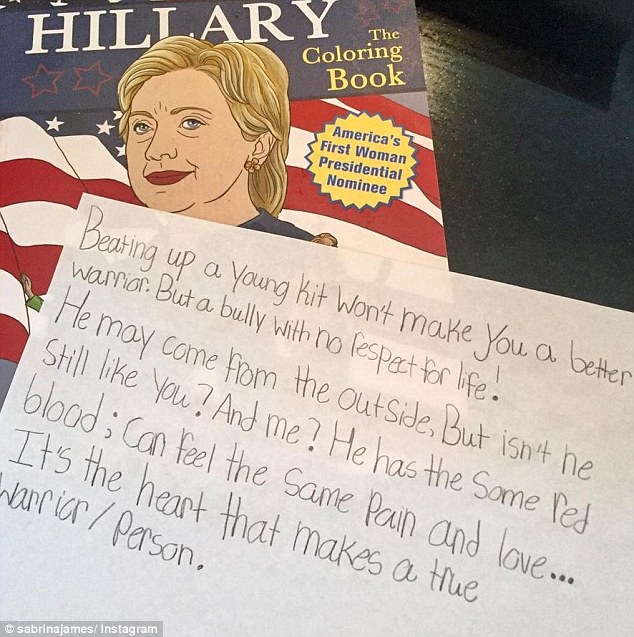 HILLARY
The
Coloring
Book
America's
First Woman
Presidential
Nominee
Beating up a young kit won't make you a better
warrior. But a bully with no respect for life!
He may come from the outside, But isn't he
still like you? And me? He has the same red
blood; can feel the same pain and love...
It's the heart that makes a true
warrior/person.
© sabrinajames/ Instagram